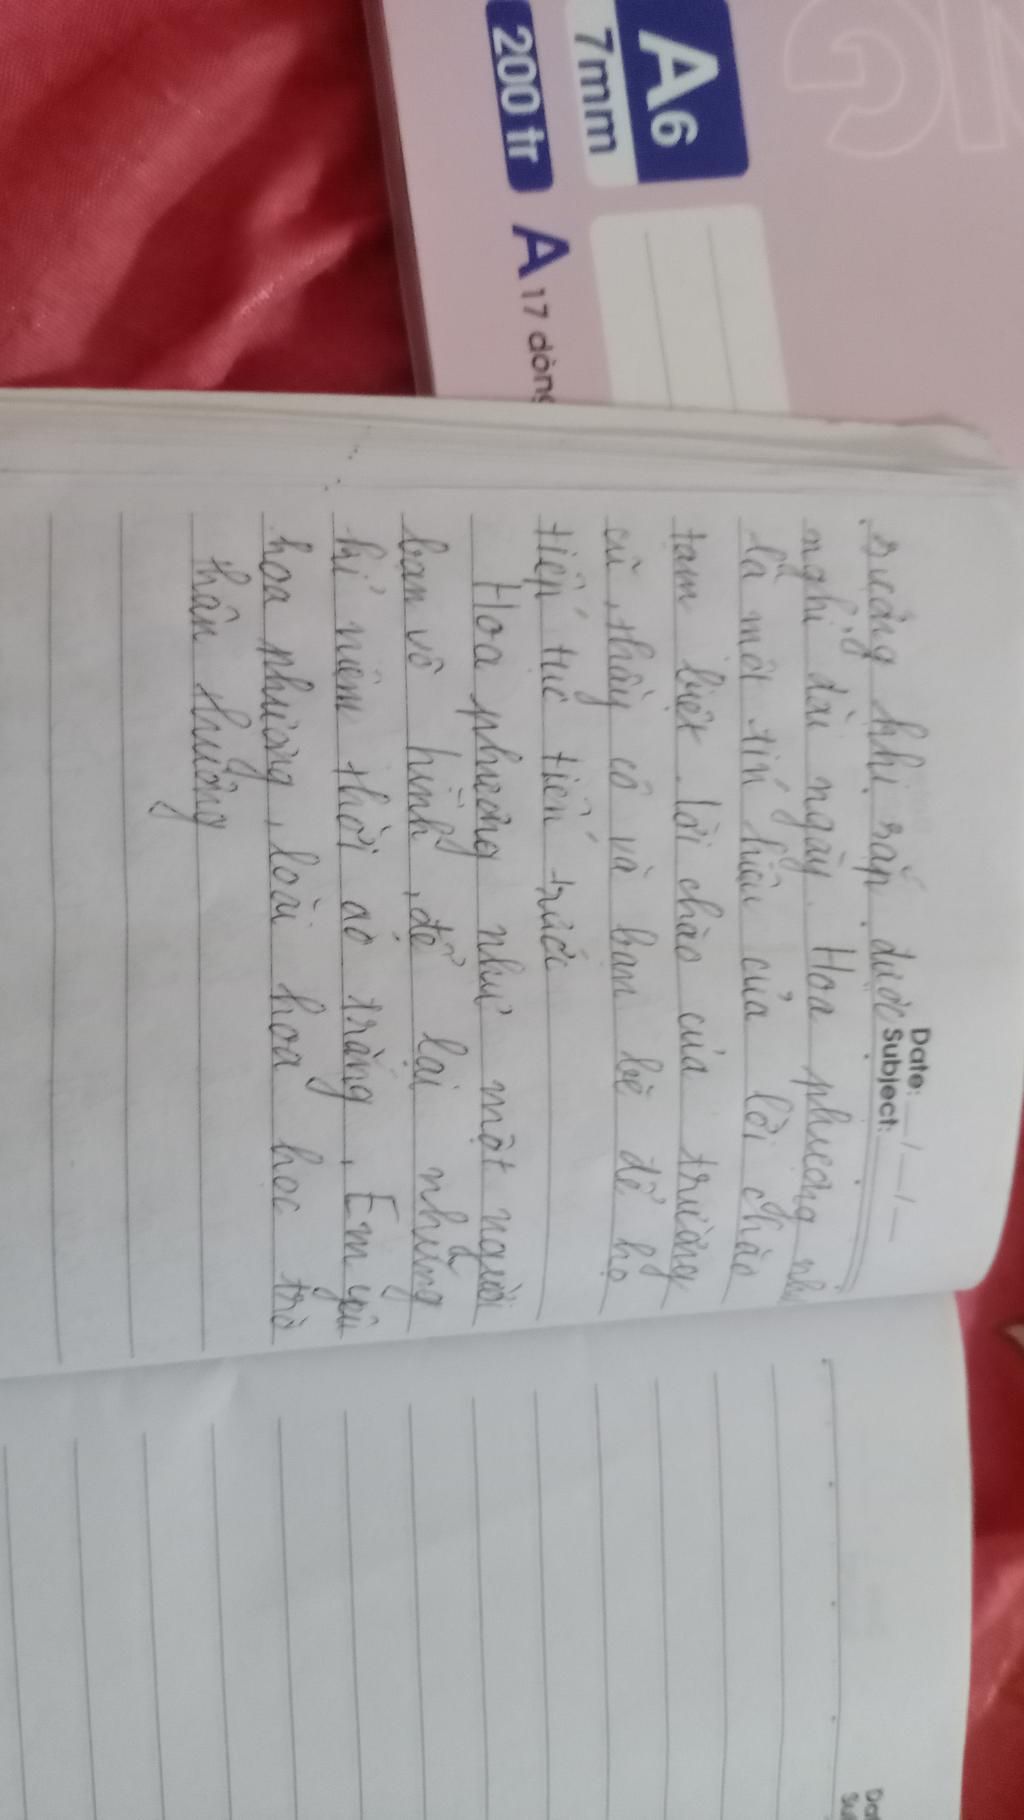 A6
7mm
200 tr
A 17 dòng
Date: / /
Subject:
sướng khi sắp được
nghỉ dài ngày. Hoa phượng như
là một tín hiệu của lời chào
tạm biệt. lời chào của trường
cũ, thầy cô và bạn bè để họ
tiếp tục tiến trước
Hoa phượng như một người
bạn vô hình, để lại những
kỉ niệm thời áo trắng, Em yêu
hoa phượng, loài hoa học trò
thân thương